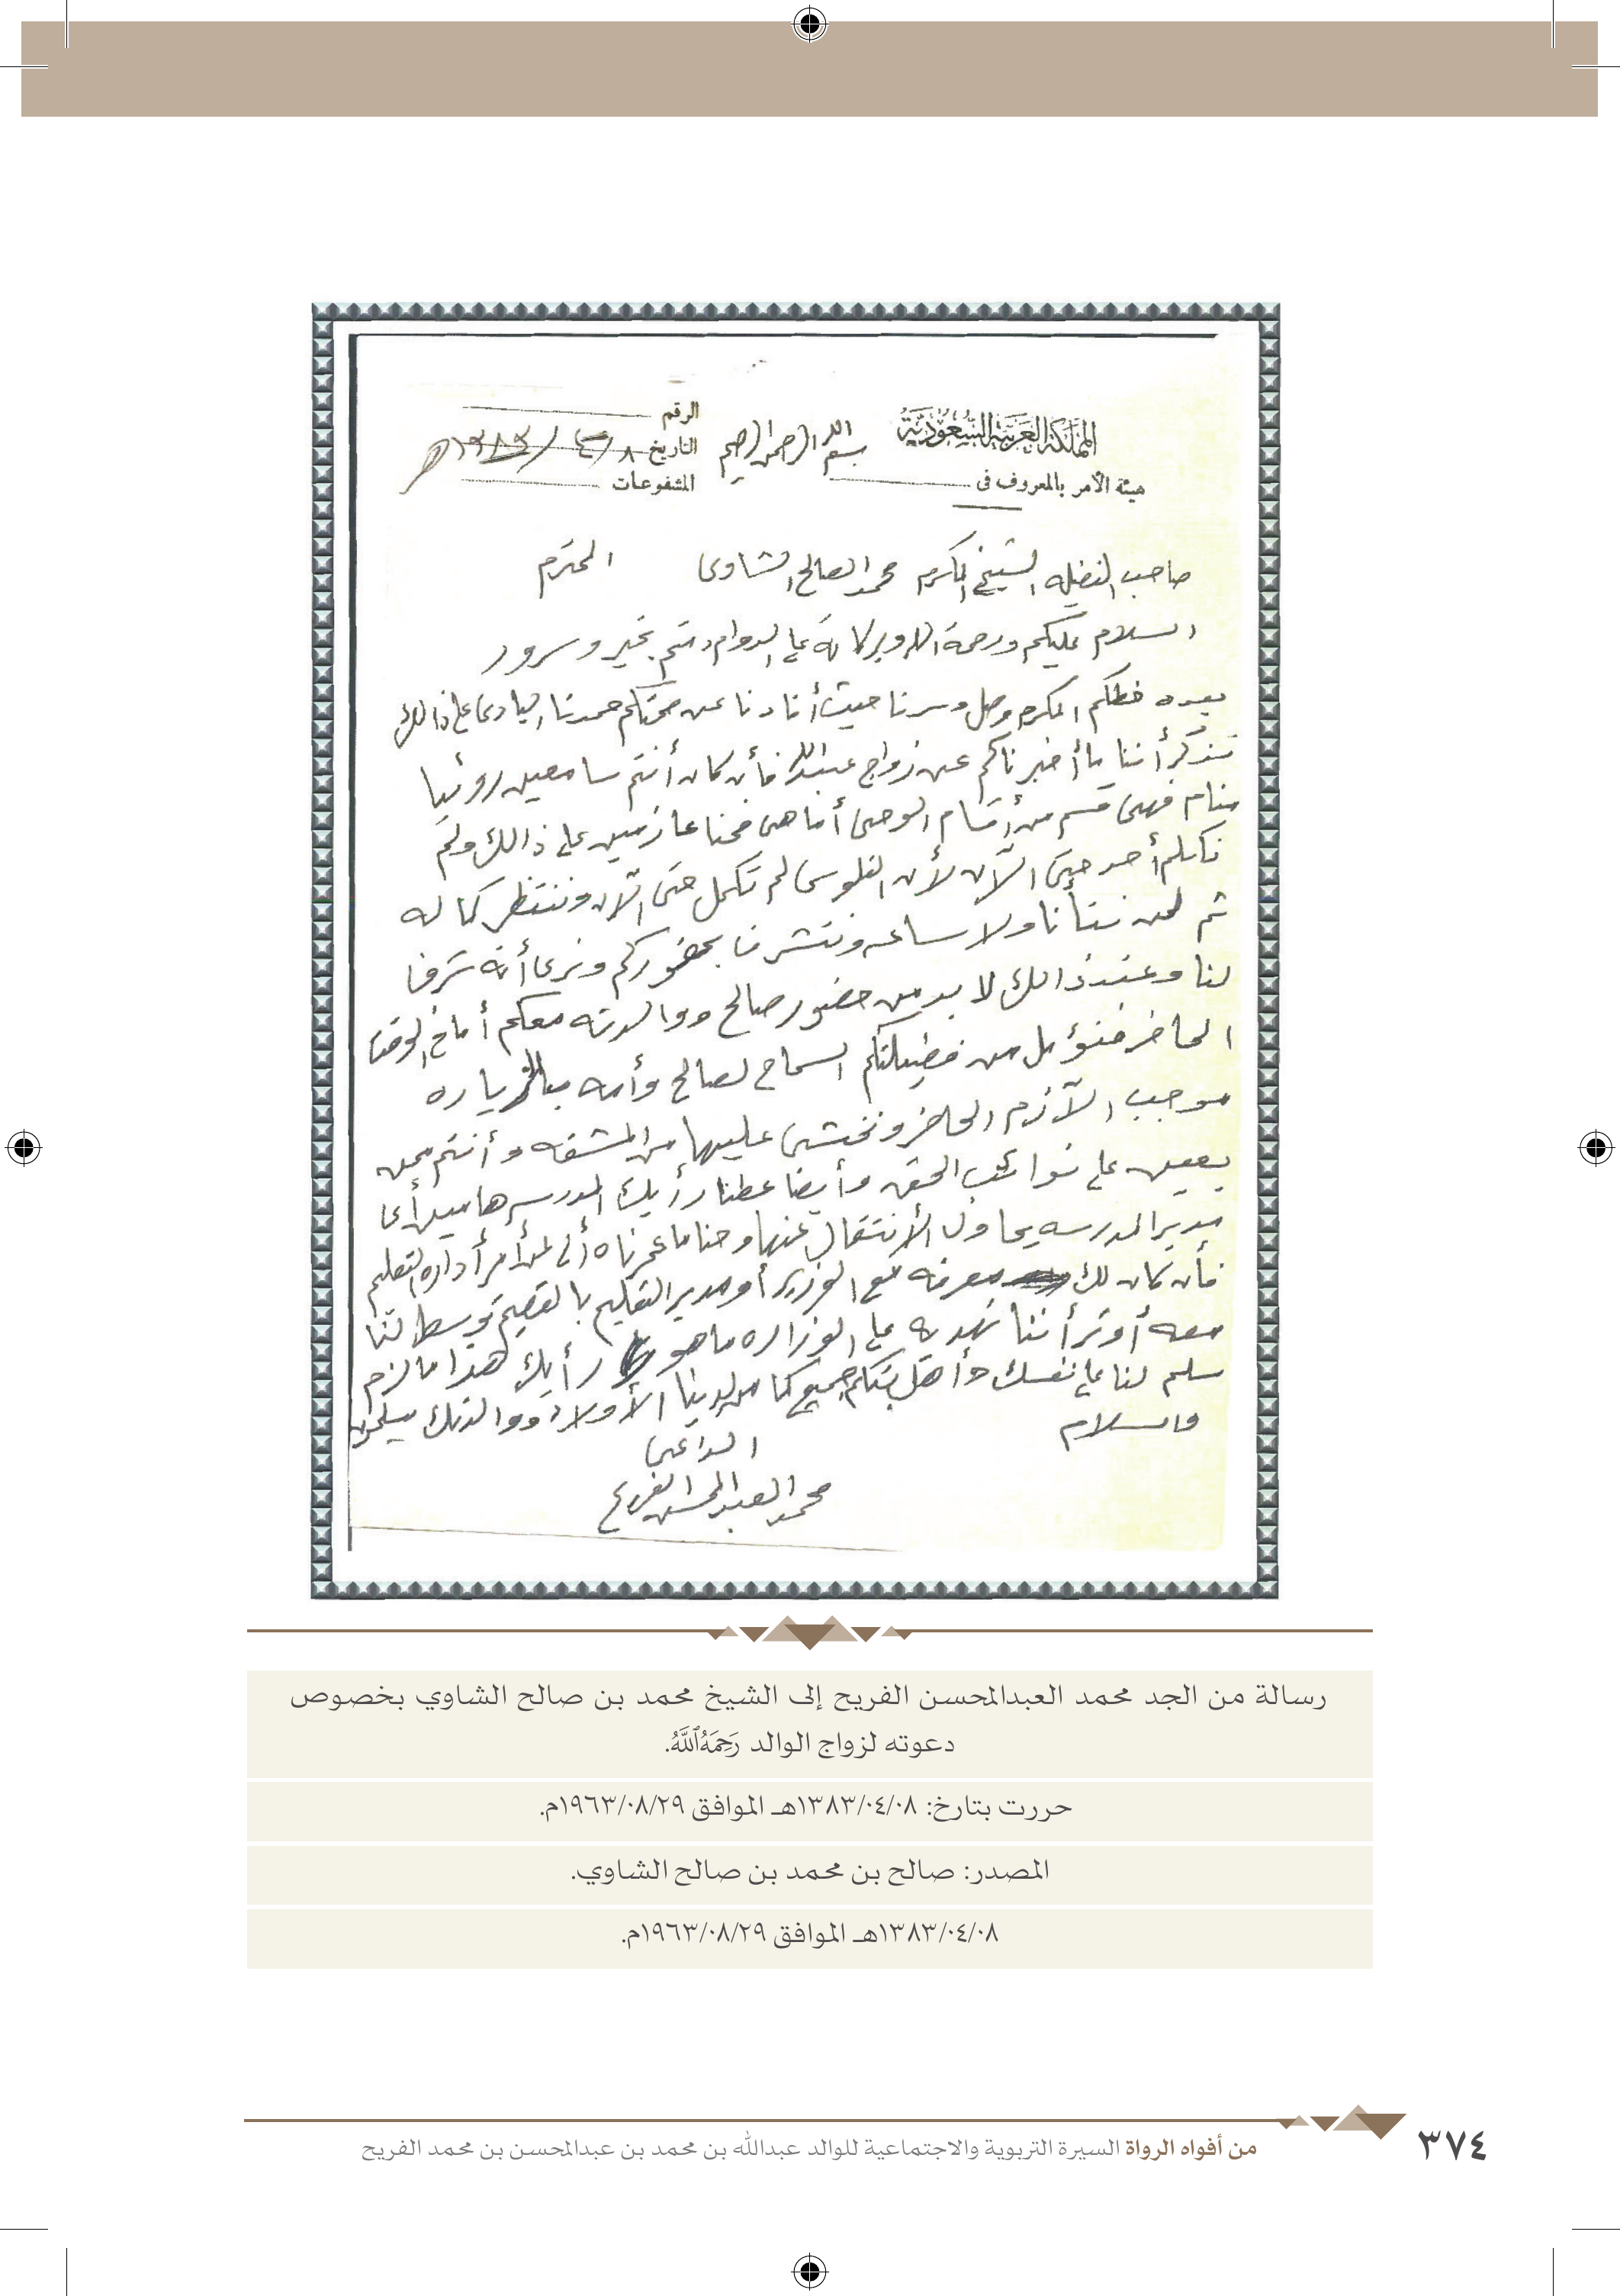 المملكة العربية السعودية
هيئة الأمر بالمعروف في
بسم الله الرحمن الرحيم
الرقم
التاريخ ٨/٤/١٣٨٣هـ
المشفوعات
صاحب الفضيله الشيخ المكرم محمد الصالح الشاوى المحترم
السلام عليكم ورحمة الله وبركاته على الدوام دمتم بخير وسرور
بعده خطكم المكرم وصل وسرنا حيث أفادنا عن صحتكم حمدنا البادى على ذالك
تذكر أننا ما أخبرناكم عن زواج عبدالله فأن كان أنتم سامعين روئيا
منام فهى قسم من أقسام الوحى أما هى فحنا عازمين على ذالك ولم
نكلم أحد حتى الآن لأن الفلوس لم تكمل حتى الآن وننتظر كماله
ثم لحن ولا ساعه ونتشرف بحضوركم ونرى أنه شرفا
لنا وعند ذالك لا بد من حضور صالح ووالدته معكم أما في الوقت
الحاضر فنؤمل من فضيلتكم السماح لصالح وأمه بالزياره
موجب الآزم الحاضر ونخشى عليها من المشقه وأنتم ممن
يعين على نوائب الحق وأيضا عطنا رأيك المدرسه هاميل أى
مدير المدرسه يحاول الأنتقال عنها وحنا ما أمر أداره التعليم
فأن كان لك معرفه مع الوزير أو مدير التعليم بالقصيم توسط لنا
معه أو ترأ ننا على الوزاره ما هو رأيك هذا ما لزم
سلم لنا على نفسك وأهل بيتكم جميع كما من لدينا الأولاد ووالدتك يسلمون
والسلام
الداعى
محمد العبدالمحسن الفريح
رسالة من الجد محمد العبدالمحسن الفريح إلى الشيخ محمد بن صالح الشاوي بخصوص
دعوته لزواج الوالد رَحِمَهُ ٱللَّهُ.
حررت بتارخ: ١٣٨٣/٠٤/٠٨هـ الموافق ١٩٦٣/٠٨/٢٩م.
المصدر: صالح بن محمد بن صالح الشاوي.
١٣٨٣/٠٤/٠٨هـ الموافق ١٩٦٣/٠٨/٢٩م.
من أفواه الرواة السيرة التربوية والاجتماعية للوالد عبدالله بن محمد بن عبدالمحسن بن محمد الفريح
٣٧٤